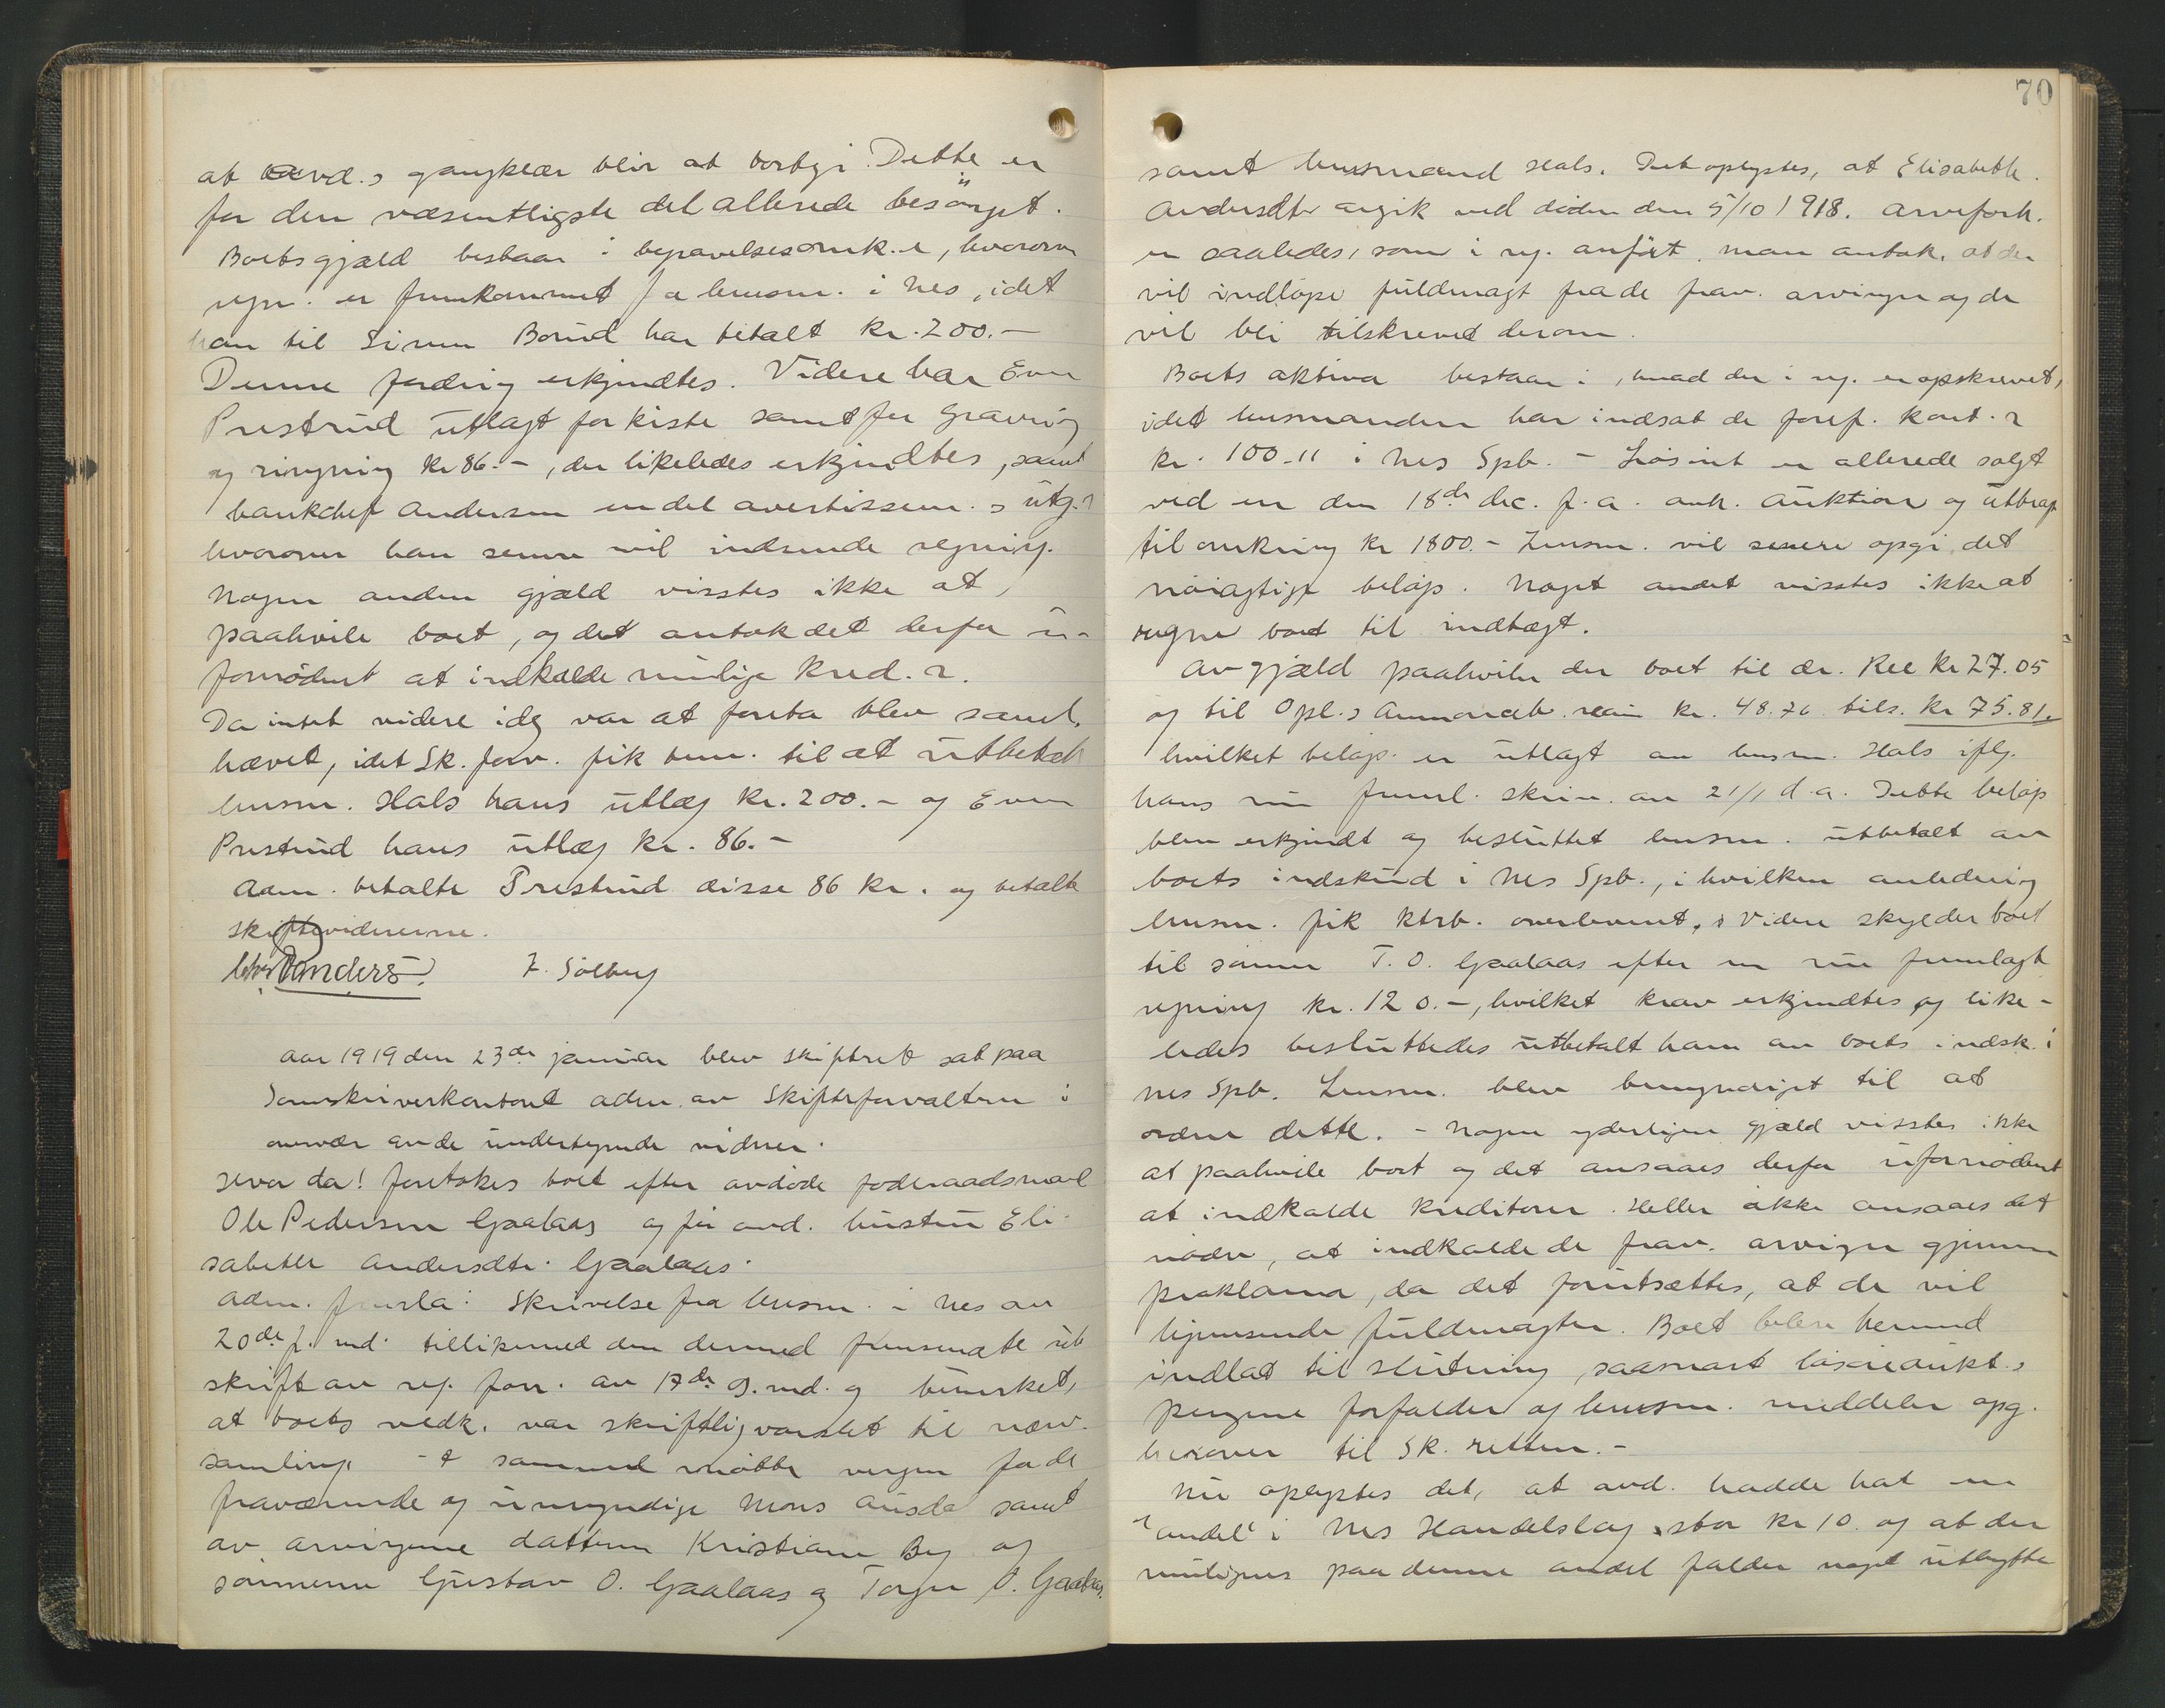 at avd.s gangklær blir at bortgi. Dette er
for den væsentligste del allerede besörget.
Boets gjæld bestaar i begravelsesomk.er, hvorom
regn. er fremkommet fra lensm. i Nes, idet
han til Simen Borud har betalt kr. 200.–
Denne fordring erkjendtes. Videre har Even
Prestrud utlagt for kiste samt for graving
og ringning kr 86.–, der likeledes erkjendtes, samt
bankchef Andersen endel avertissem.s utg.r
hvorover han senere vil indsende regning.
Nogen anden gjæld visstes ikke at
paahvile boet, og det antok det derfor u-
fornødent at indkalde mulige kred.r.
Da intet videre idg var at foreta blev saml.
hævet, idet Sk.forv. fik bem. til at utbetale
lensm. Hals hans utlæg kr. 200.– og Even
Prestrud hans utlæg kr. 86.–
Adm. betalte Prestrud disse 86 kr. og betalte
skiftevidnerne.
Anders F. Solberg
Aar 1919 den 23de januar blev skifteret sat paa
Sorenskriverkontoret adm. av Skifteforvalteren i
overvær av de undertegnede vidner.
Hvor da! foretokes boet efter avdöde föderaadsmand
Ole Pedersen Gaalaas og før avd. hustru Eli-
sabeth Andersdtr. Gaalaas.
Adm. fremla: Skrivelse fra lensm. i Nes av
20de f. md. tillikemed den dermed fremsendte ut-
skrift av reg. forr. av 17de s. md. og bemerket,
at boets vedk. var skriftlig varslet til nærv.
samling. – I sammed møtte vergen for de
fraværende og umyndige Mons Ausdal samt
av arvingene datteren Kristiane By og
sönnerne Gustav O. Gaalaas og Torger O. Gaalaas,
70
samt lensmand Hals. Det oplystes, at Elisabeth
Andersdtr avgik ved döden den 5/10 1918. Arveforh.
er saaledes, som i reg. anfört. Man antok, at der
vil indlöpe fuldmagt fra de frav. arvinger og de
vil bli tilskrevet derom.
Boets aktiva bestaar i, hvad der i reg. er opskrevet,
idet lensmanden har indsat de foref. kont.r
kr. 100.11 i Nes Spb. – Lösöret er allerede solgt
ved en den 18de dec. f.a. avh. auktion og utbragt
til omkring kr 1800.– Lensm. vil senere opgi det
nöiagtige belöp. Noget andet visstes ikke at
regne boet til indtægt.
Av gjæld paahviler der boet til dr. Ree kr 27.05
og til Opl.s Annonceb. kr. 48.76 tils. kr 75.81,
hvilket belöp er utlagt av lensm. Hals iflg.
hans nu freml. skriv. av 21/1 d.a. Dette belöp
blev erkjendt og besluttet lensm. utbetalt av
boets indskud i Nes Spb., i hvilken anledning
lensm. fik ktrb. overlevert. Videre skylder boet
til sönnen T. O. Gaalaas efter en nu fremlagt
regning kr. 120.–, hvilket krav erkjendtes og like-
ledes besluttedes utbetalt ham av boets indsk. i
Nes Spb. Lensm. blev bemyndiget til at
ordne dette. – Nogen yderligere gjæld visstes ikke
at paahvile boet og det ansaaes derfor ufornödent
at indkalde kreditorer. Heller ikke ansaaes det
nödv., at indkalde de frav. arvinger gjennem
proklama, da det forutsættes, at de vil
hjemsende fuldmagter. Boet blev hermed
indlat til slutning, saasnart lösöreaukt.s
pengene forfalder og lensm. meddeler opg.
herover til Sk.retten.–
Nu oplystes det, at avd. hadde hat en
"andel" i Nes Handelslag, stor kr 10. og at der
muligens paa denne andel falder noget utbytte